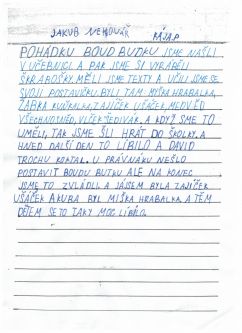 JAKUB NEHOVÁŘ
POHÁDKU BOUD BUDKU JSME NAŠLI
V UČEBNICI A PAK JSME SI VYRÁBĚLI
ŠKRABOŠKY. MĚLI JSME TEXTY A UČILI JSME SE
SVOJI POSTAVIČKU. BYLI TAM: MYŠKA HRABALKA,
ŽABKA KUŇKALKA, ZAJÍČEK UŠÁČEK, MEDVĚD
VŠECHNOSNĚD, VLČEK ŠEDIVÁK. A KDYŽ SME TO
UMĚLI, TAK JSME ŠLI HRÁT DO ŠKOLKY. A
HNED DALŠÍ DEN TO LÍBILO A DAVID
TROCHU KOKTAL. U PRAVNÁKU NEŠLO
POSTAVIT BOUDU BUTKU ALE NA KONEC
JSME TO ZVLÁDLI. A JÁ JSEM BYLA ZAJÍČEK
UŠÁČEK A KUBA BYL MIŠKA HRABALKA. A TĚM
DĚTEM SE TO TAKY MOC LÍBILO.